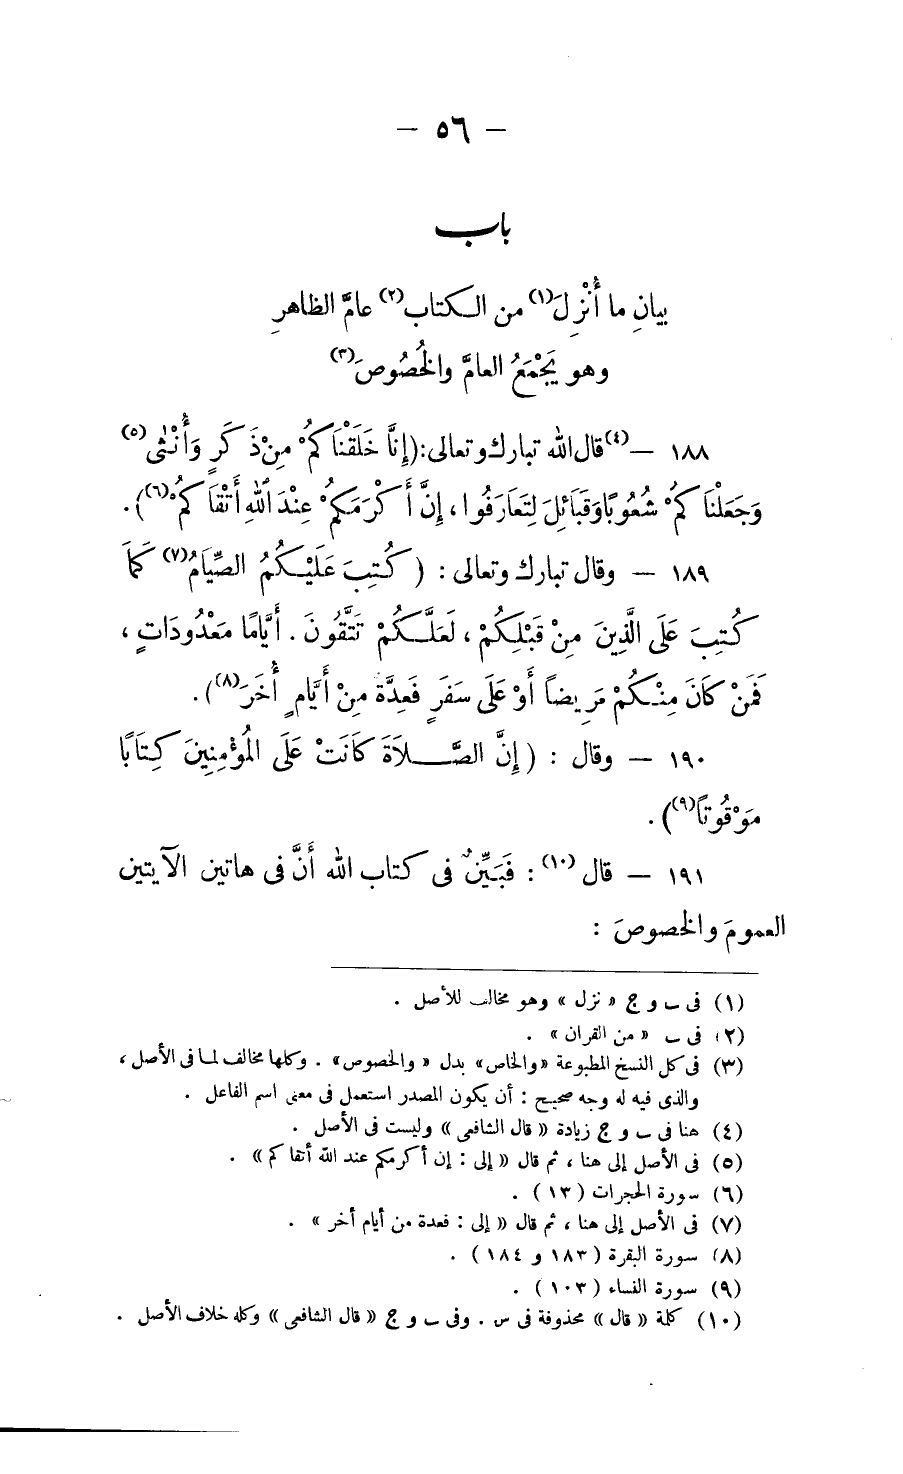 — ٥٦ —
باب
بيانِ ما أُنْزِلَ(١) من الكتاب(٢) عامَّ الظاهرِ
وهو يَجْمَعُ العامَّ والخُصُوصَ(٣)
١٨٨ — (٤)قال الله تبارك وتعالى: (إِنَّا خَلَقْنَاكُمْ مِنْ ذَكَرٍ وَأُنْثَى(٥)
وَجَعَلْنَاكُمْ شُعُوبًا وَقَبَائِلَ لِتَعَارَفُوا، إِنَّ أَكْرَمَكُمْ عِنْدَ اللهِ أَتْقَاكُمْ(٦)).
١٨٩ — وقال تبارك وتعالى: (كُتِبَ عَلَيْكُمُ الصِّيَامُ(٧) كَمَا
كُتِبَ عَلَى الَّذِينَ مِنْ قَبْلِكُمْ، لَعَلَّكُمْ تَتَّقُونَ. أَيَّامًا مَعْدُودَاتٍ،
فَمَنْ كَانَ مِنْكُمْ مَرِيضاً أَوْ عَلَى سَفَرٍ فَعِدَّةٌ مِنْ أَيَّامٍ أُخَرَ(٨)).
١٩٠ — وقال: (إِنَّ الصَّلَاةَ كَانَتْ عَلَى المُؤْمِنِينَ كِتَابًا
مَوْقُوتاً(٩)).
١٩١ — قال(١٠): فَبَيِّنٌ فى كتاب الله أَنَّ فى هاتين الآيتين
العمومَ والخصوصَ:
(١) فى ب و ج «نزل» وهو مخالف للأصل.
(٢) فى ب «من القران».
(٣) فى كل النسخ المطبوعة «والخاص» بدل «والخصوص». وكلها مخالف لما فى الأصل،
والذى فيه له وجه صحيح: أن يكون المصدر استعمل فى معنى اسم الفاعل.
(٤) هنا فى ب و ج زيادة «قال الشافعى» وليست فى الأصل.
(٥) فى الأصل إلى هنا، ثم قال «إلى: إن أكرمكم عند الله أتقاكم».
(٦) سورة الحجرات (١٣).
(٧) فى الأصل إلى هنا، ثم قال «إلى: فعدة من أيام أخر».
(٨) سورة البقرة (١٨٣ و ١٨٤).
(٩) سورة النساء (١٠٣).
(١٠) كلمة «قال» محذوفة فى س. وفى ب و ج «قال الشافعى» وكله خلاف الأصل.